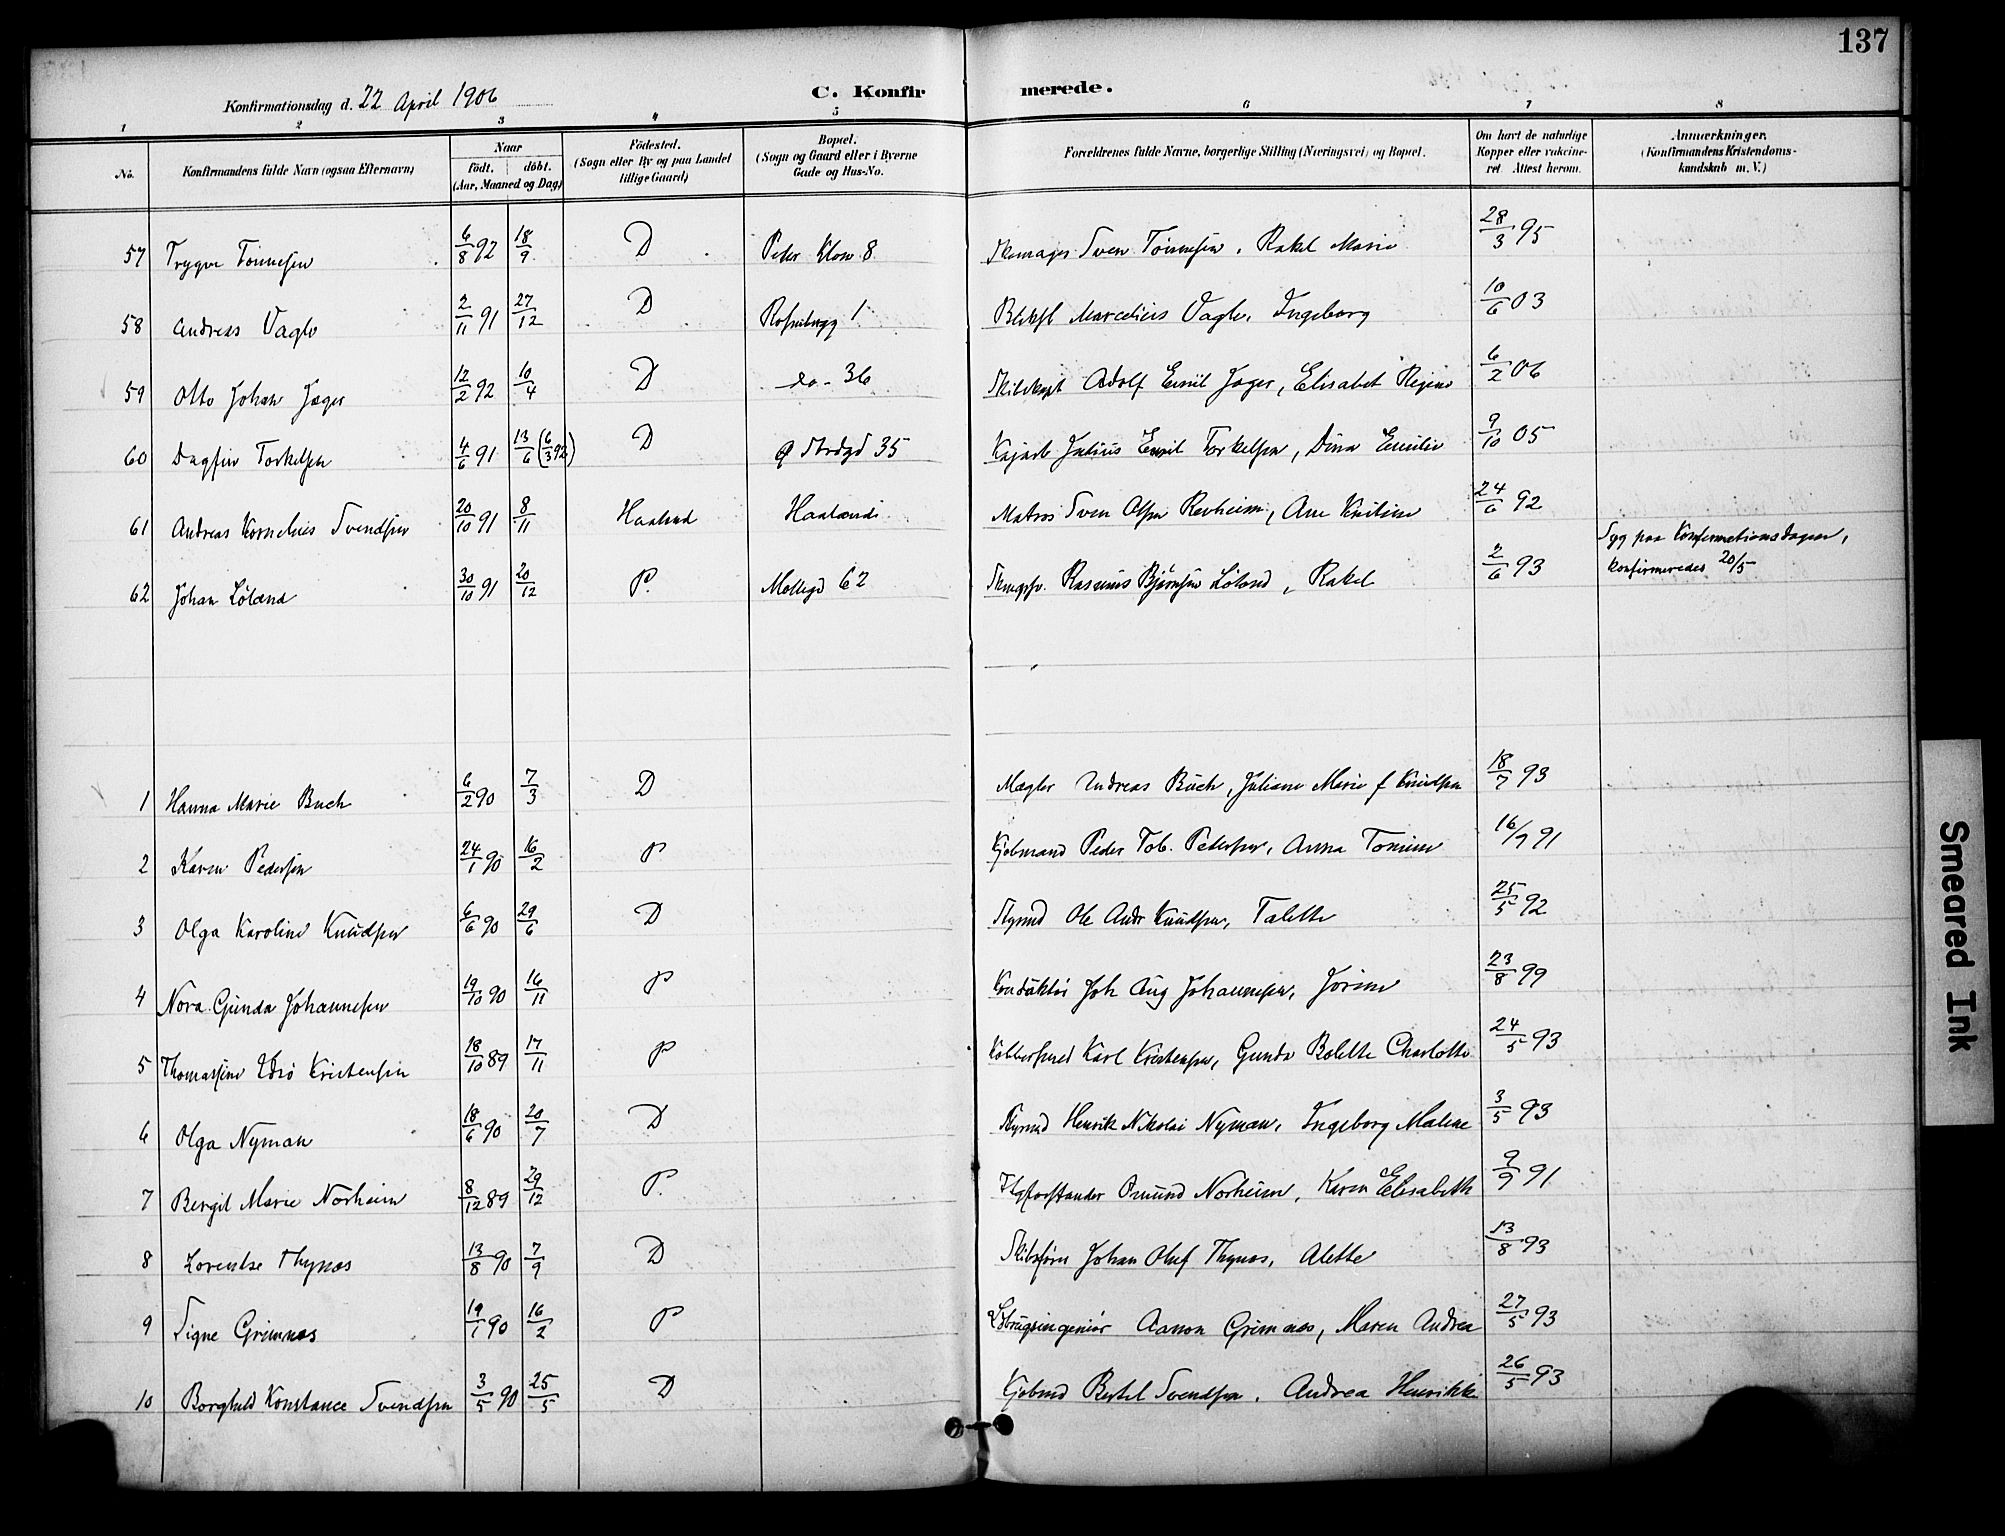 137
Konfirmationsdag d. 22 April 1906
C. Konfirmerede.
1 2 3 4 5 6 7 8
No.
Konfirmandens fulde Navn (ogsaa Efternavn)
Naar
födt. döbt.
(Aar, Maaned og Dag)
Födested.
(Sogn eller By og paa Landet
tillige Gaard)
Bopæl.
(Sogn og Gaard eller i Byerne
Gade og Hus-No.
Forældrenes fulde Navne, borgerlige Stilling (Næringsvei) og Bopæl.
Om havt de naturlige
Kopper eller vakcine-
ret Attest herom.
Anmærkninger.
(Konfirmandens Kristendoms-
kundskab m. V.)
57 Trygve Tönnesen 6/8 92 18/9 D Peder Klow 8 Skomager Sven Tönnesen, Rakel Marie 28/3 95
58 Andreas Vagle 2/11 91 27/12 D 1 Marcelius Vagle, Ingeborg 10/6 03
59 Otto Johan Jæger 12/2 92 10/4 D do - 36 Adolf Emil Jæger, Elisabet Regine 6/2 06
60 Dagfin Torkelsen 4/6 91 13/6 (6/3 92) D Ø Strdgd 35 Julius Emil Torkelsen, Dina Emilie 9/10 05
61 Andreas Kornelius Svendsen 20/10 91 8/11 Haaland Haaland Matros Sven Olsen Revheim, Ane Kristine 24/6 92
62 Johan Löland 30/10 91 20/12 P. Mollegd 62 Rasmus Bjørnsen Löland, Rakel 2/6 93 Syg paa Konfirmationsdagen,
konfirmeredes 20/5
1 Hanna Marie Buch 6/2 90 7/3 D Mægler Andreas Buch, Juliane Marie f Knudsen 18/7 93
2 Karen Pedersen 24/1 90 16/2 P Kjobmand Peder Tob. Pedersen, Anna Tomine 16/7 91
3 Olga Karoline Knudsen 6/6 90 29/6 D Styrmd Ole Andr Knudsen, Talette 25/5 92
4 Nora Gunda Johannesen 19/10 90 16/11 P Konduktör Joh Aug Johannesen, Jorine 23/8 99
5 Thomassine Edsö Kristensen 18/10 89 17/11 P Kobbersmed Karl Kristensen, Gunda Bolette Charlotte 24/5 93
6 Olga Nyman 18/6 90 20/7 D Styrmd Henrik Nikolai Nyman, Ingeborg Malene 3/5 93
7 Bergit Marie Norheim 8/12 89 29/12 P. Omund Norheim, Karen Elisabeth 9/9 91
8 Lorentse Thynæs 13/8 90 7/9 D Skibsförer Johan Oluf Thynæs, Alette 13/8 93
9 Signe Grimnæs 19/1 90 16/2 P Aanon Grimnæs, Maren Andrea 27/5 93
10 Borghild Konstance Svendsen 3/5 90 25/5 D Kjobmd Bertel Svendsen, Andrea Henrikke 26/5 93
Smeared Ink